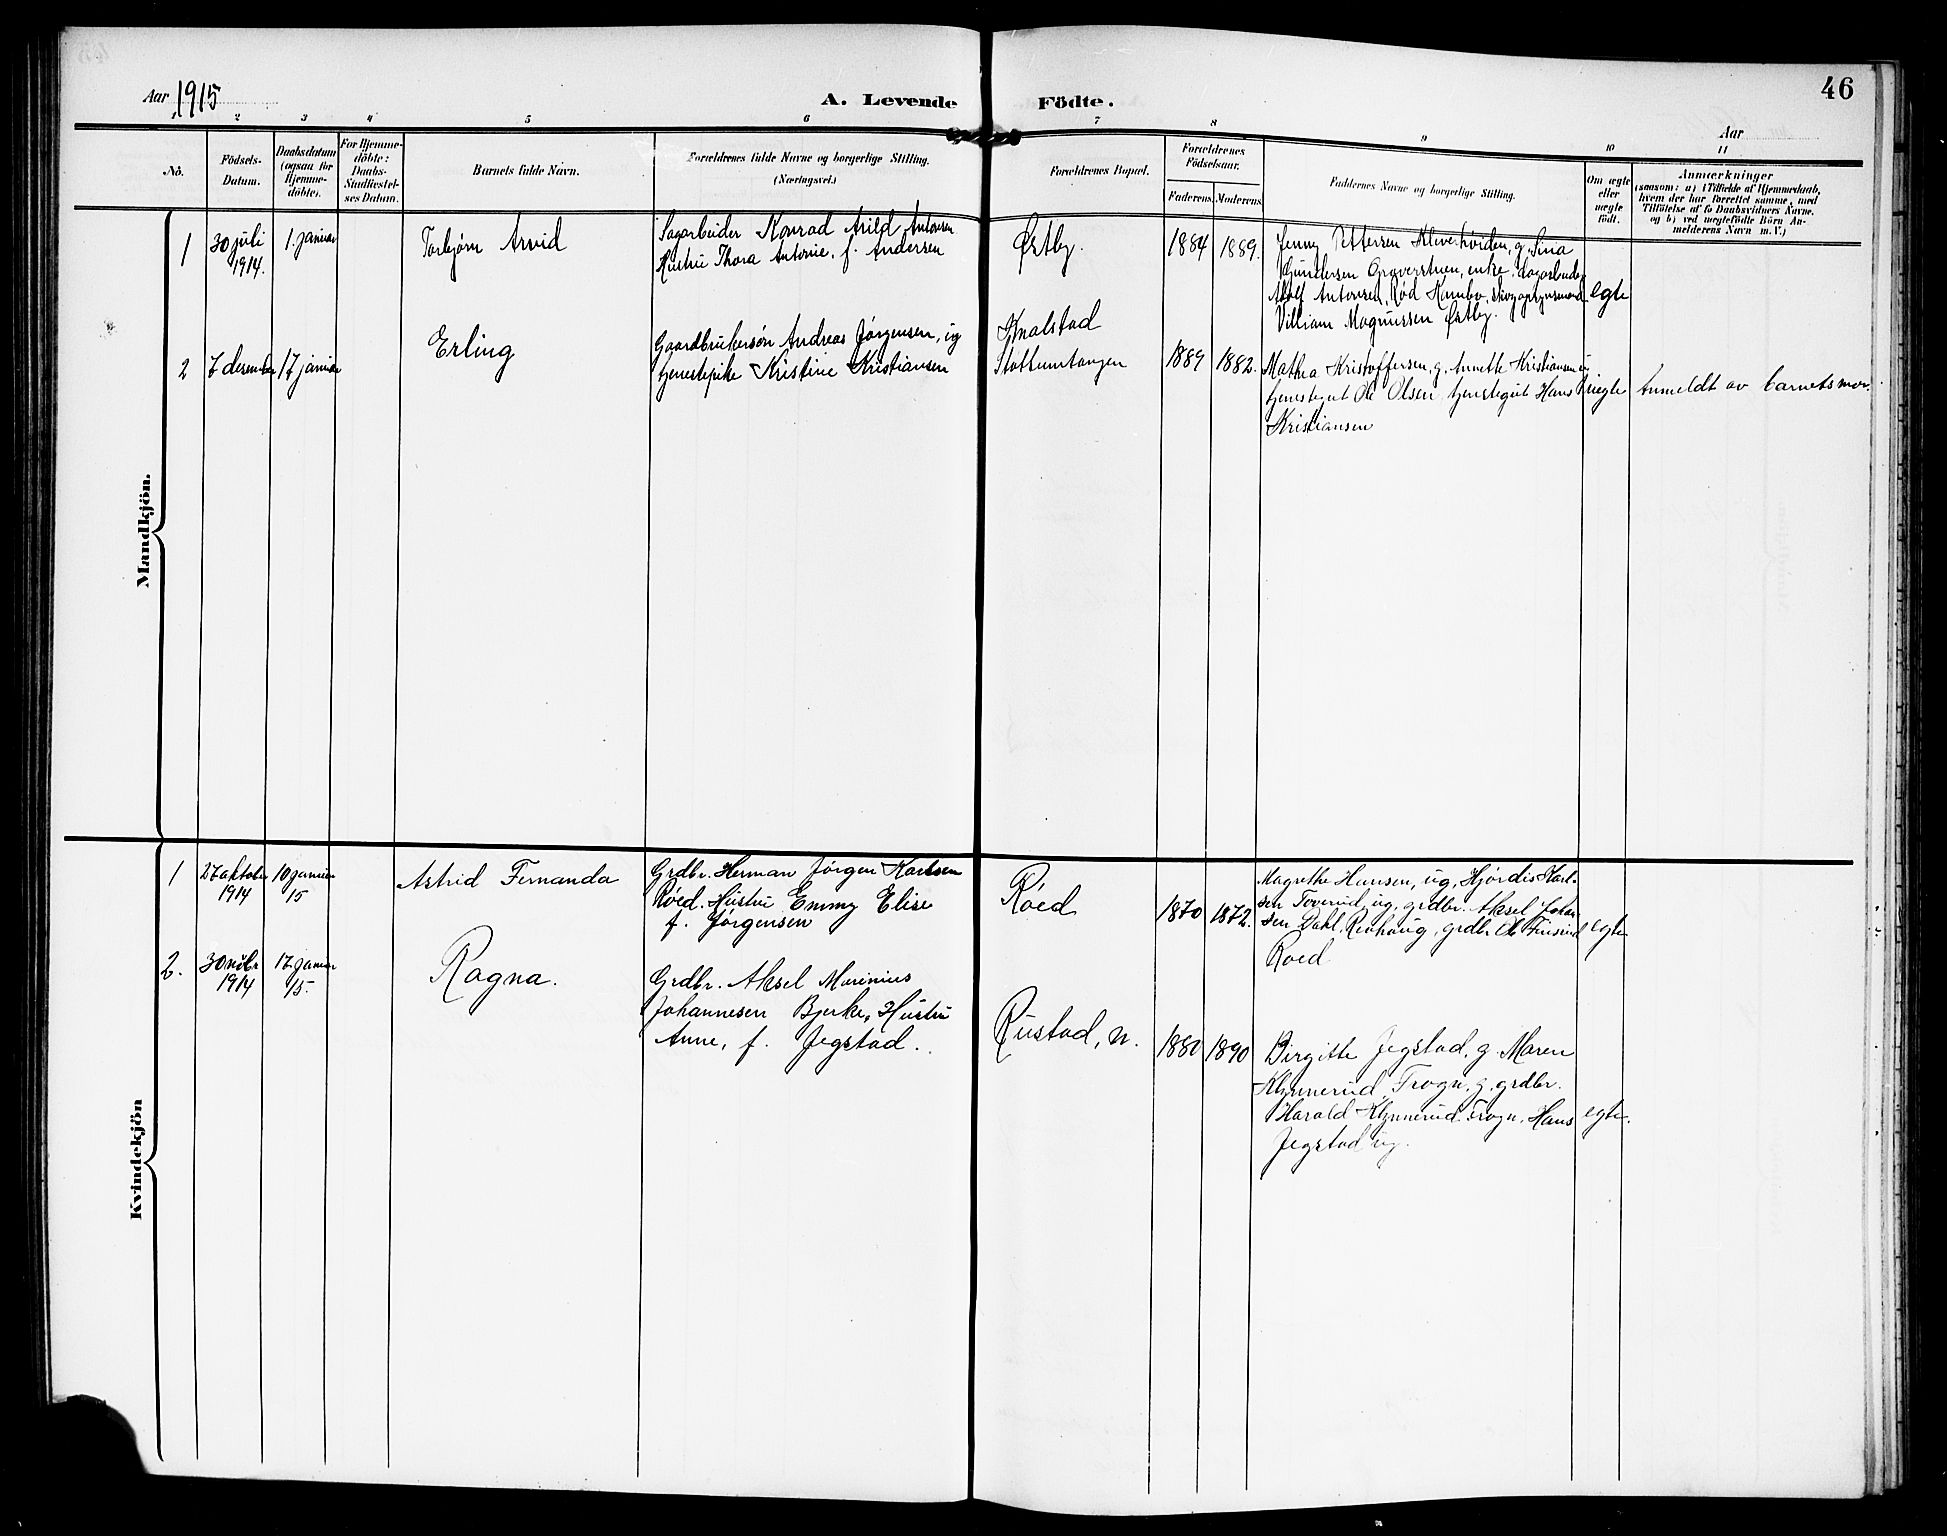 46
Aar 1915
A. Levende Födte.
Aar
1 2 3 4 5 6 7 8 9 10 11
No.
Födsels-
Datum.
Daabsdatum
(ogsaa for
Hjemme-
döbte).
For Hjemme-
döbte:
Daabs-
Stadfæstel-
ses Datum.
Barnets fulde Navn.
Forældrenes fulde Navne og borgerlige Stilling.
(Næringsvei.)
Forældrenes Bopæl.
Forældrenes
Födselsaar.
Faderens. Moderens.
Faddernes Navne og borgerlige Stilling.
Om ægte
eller
uægte
født.
Anmærkninger
(saasom: a) i Tilfælde af Hjemmedaab,
hvem der har forrettet samme, med
Tilföielse af to Daabsvidners Navne.
og b) ved uægtefödte Börn An-
melderens Navn m. V.)
Mandkjön.
1
30 juli
1914.
1. januar
Torbjørn Arvid
Sagarbeider Konrad Arild Antonsen
Hustru Thora Antonie, f. Andersen
Østby.
1884 1889.
Jenny Pettersen Kleverhviden, g. Sina
Gundersen Graverstuen, enke, sagarbeider
Adolf Antonsen, Rød Hambo, skogopsynsmand
Villiam Magnussen Østby.
egte
2
7 desember
17 januar
Erling
Gaardbrukersøn Andreas Jørgensen, ug
tjenestepike Kristine Kristiansen
Knalstad
Stottumtangen
1889 1882.
Mathea Kristoffersen, g. Annette Kristiansen ug
tjenestegut Ole Olsen, tjenestegut Hans
Kristiansen
uegte
Anmeldt av barnets mor.
Kvindekjön
1
27 oktober
1914
10 januar
15
Astrid Fernanda
Grdbr. Herman Jørgen Karlsen
Røed. Hustru Emmy Elise
f. Jørgensen
Røed
1870 1872.
Magrethe Hansen, ug, Hjørdis Karl-
sen Toverud, ug, grdbr. Aksel Johan-
sen Dahl, Revhaug, grdbr. Ole
Røed
egte
2.
30 novbr
1914
17 januar
15.
Ragna.
Grdbr. Aksel Marinius
Johannesen Bjerke, Hustru
Anne, f. Jegstad.
Rustad, n.
1880 1890
Birgitte Jegstad, g. Maren
Klynnerud, Frogn, g. grdbr.
Harald Klynnerud Frogn, Hans
Jegstad ug.
egte.